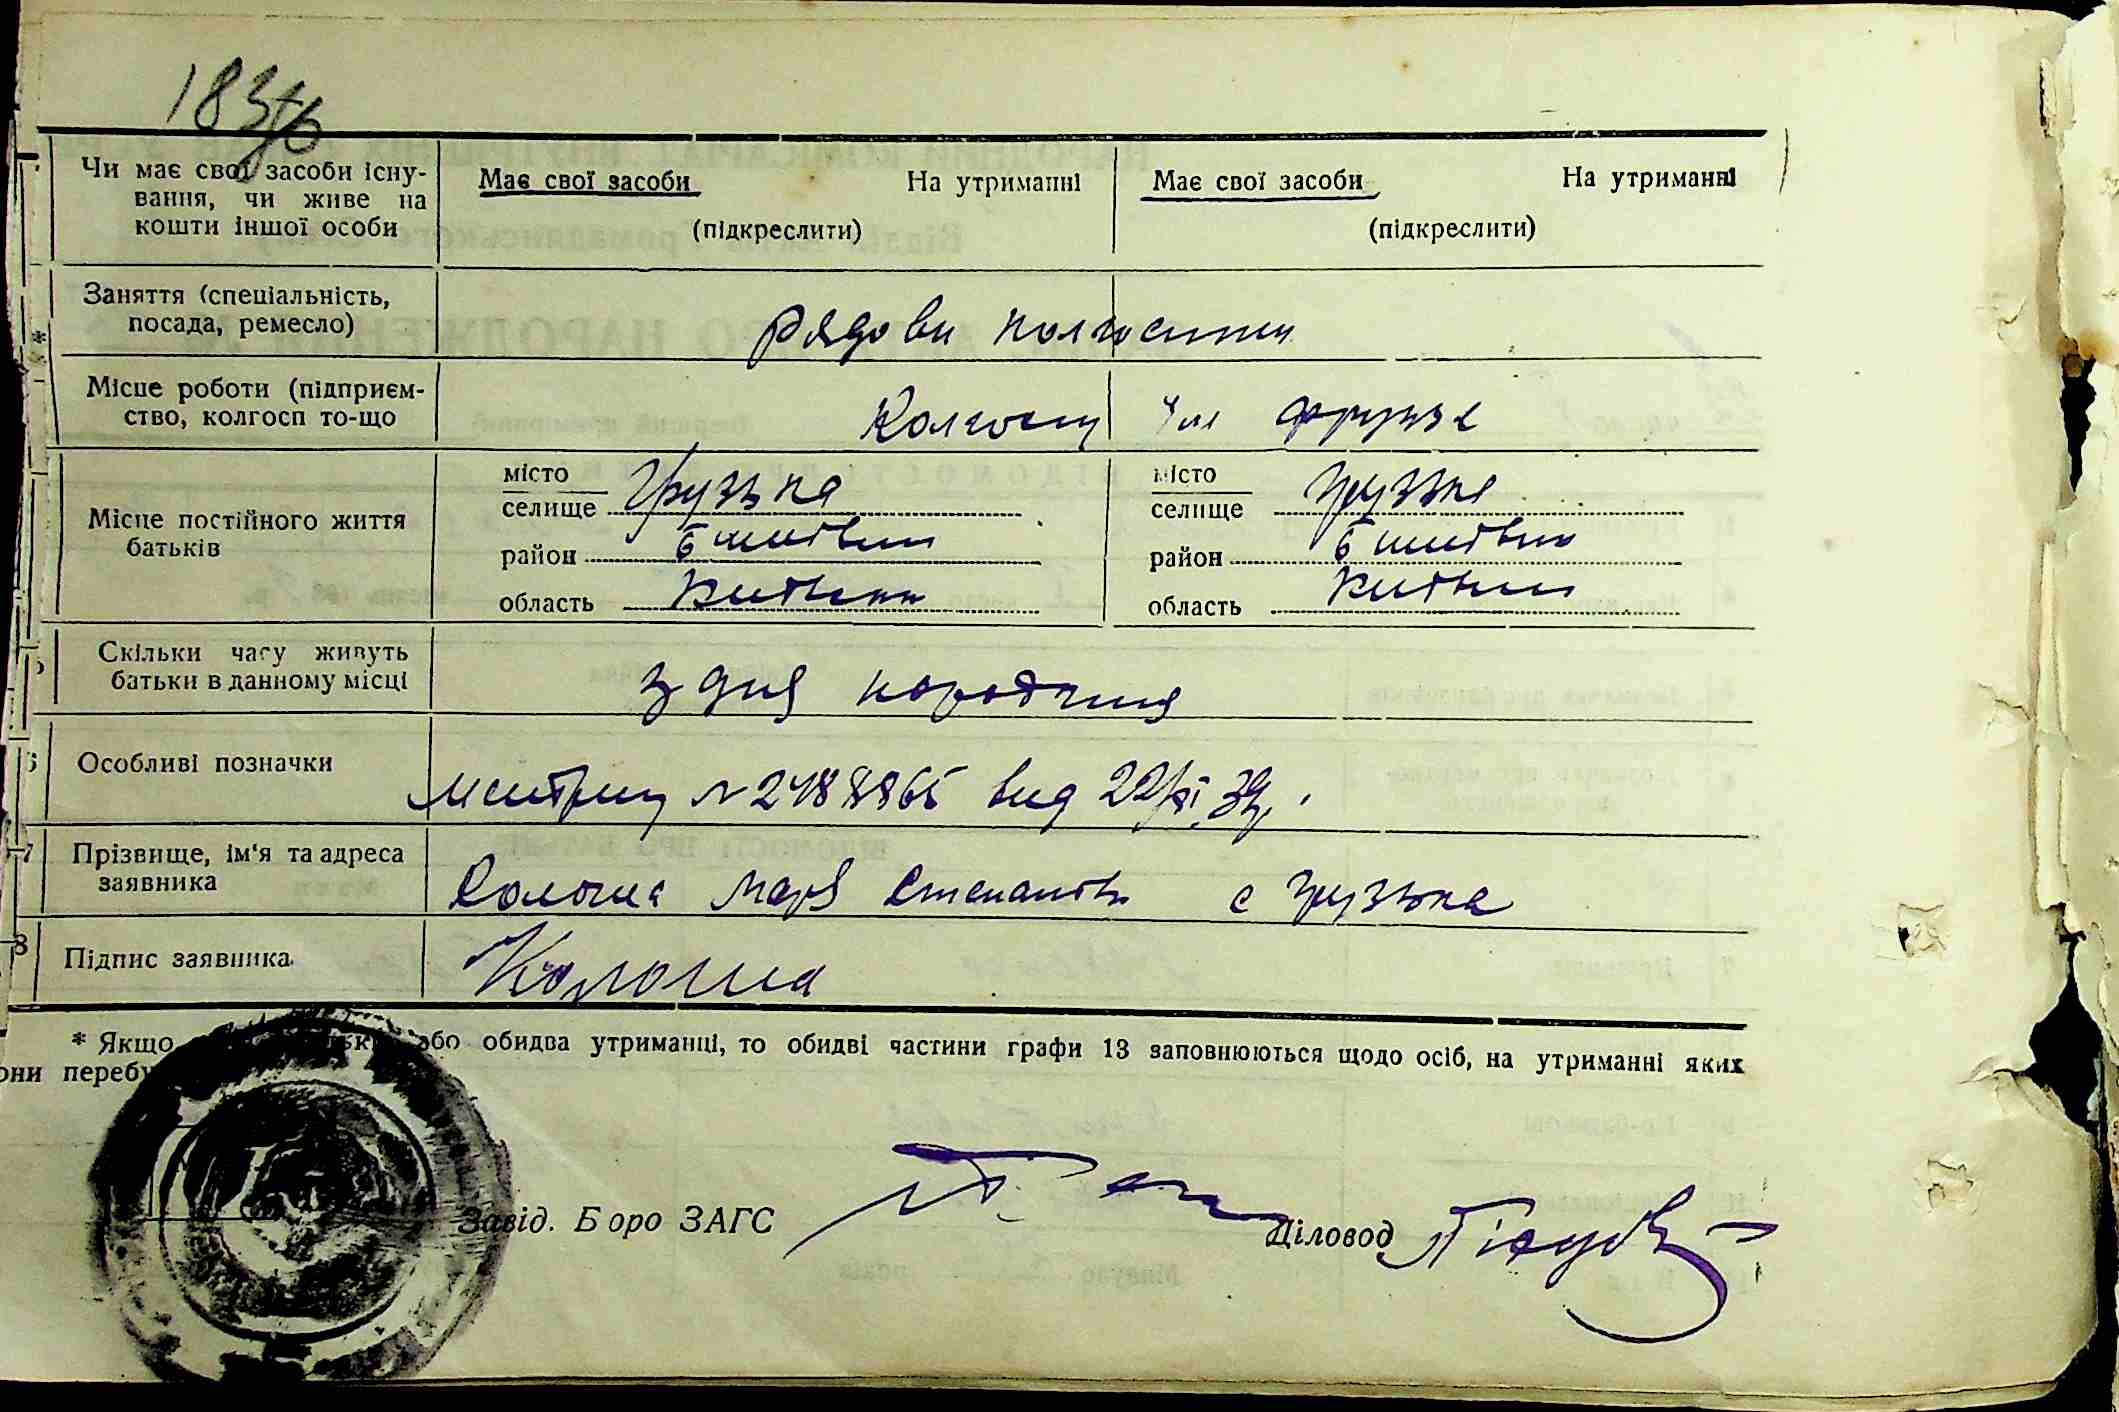 183
Чи має свої засоби існу-
вання, чи живе на
кошти іншої особи
Має свої засоби На утриманні
(підкреслити)
Має свої засоби На утриманні
(підкреслити)
*
Заняття (спеціальність,
посада, ремесло)
рядови колгоспни
Місце роботи (підприєм-
ство, колгосп то-що
Колгосп Ім Фрунзе
Місце постійного життя
батьків
місто
селище Грузька
район
область
місто
селище Грузька
район
область
Скільки часу живуть
батьки в данному місці
з дня народження
6
Особливі позначки
№ 2488865 вид 22/XI 39р.
7
Прізвище, ім'я та адреса
заявника
Маря с Грузька
8
Підпис заявника
* Якщо або обидва утриманці, то обидві частини графи 13 заповнюються щодо осіб, на утриманні яких
они перебу
Завід. Бюро ЗАГС
Діловод